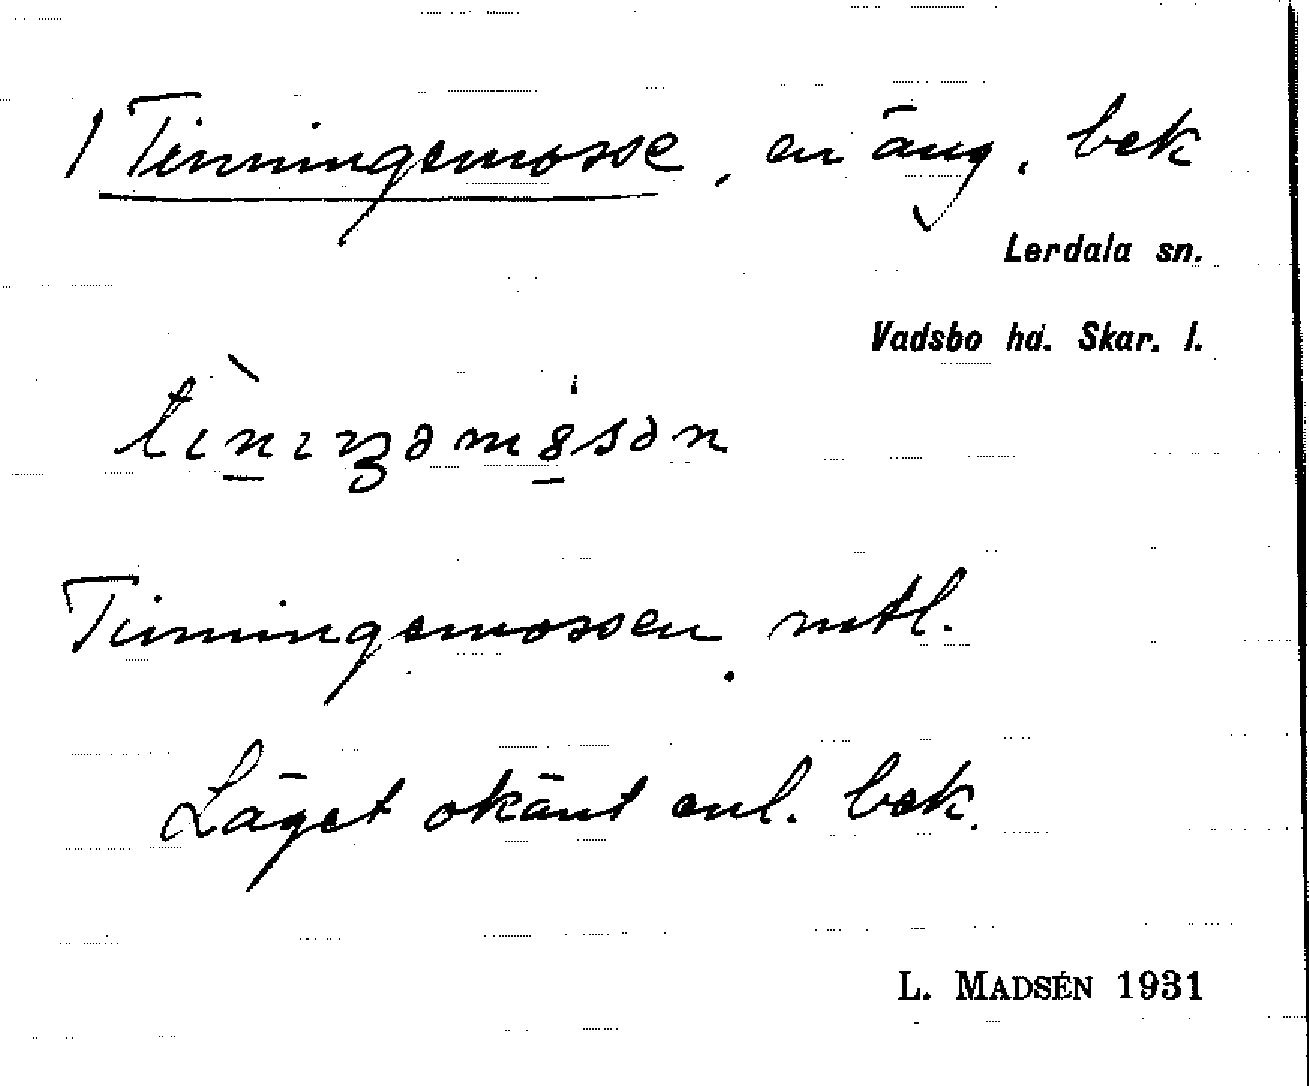 1 Tinningemosse, en äng, bek
Lerdala sn.
Vadsbo hd. Skar. l.
Tinningemossen mtl.
Läget okänt enl. bek.
L. MADSÉN 1931